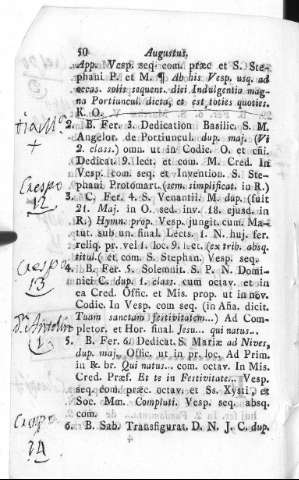 50 Augustus,
App. Vesp. seq. com. præc et S. Ste-
phani P. et M. ¶ Ab his Vesp. usq. ad
occas. solis sequent. diei Indulgentia mag-
na Portiuncul. dicta, et est toties quoties.
K. O.
2. B. Fer. 3. Dedication Basilic. S. M.
Angelor. de Portiuncul. dup. maj. (Vi
2. class.) omn. ut in Codic. O. et cñi.
Dedicat. 9. lect. et com. M. Cred. In
Vesp. com seq. et Invention. S. Ste-
phani Protomart. (sem. simplificat. in R.)
3. C. Fer. 4. S. Venantii M. dup. (fuit
21. Maj. in O. sed. inv. 18. ejusd. in
R.) Hymn. prop. Vesp. jungit. cum. Ma-
tut. sub un. final. Lects. 1. N. huj. fer.
reliq. pr. vel 1. loc. 9. lect. (ex trib. absq.
titul.) et com. S. Stephan. Vesp. seq.
4. B. Fer. 5. Solemnit. S. P. N. Domi-
nici C. dup. 1. class. cum octav. et in
ea Cred. Offic. et Mis. prop. ut in nov.
Codic. In Vesp. com seq. (in Aña. dicit.
Tuam sanctam festivitatem...) Ad Com-
pletor. et Hor. final. Jesu... qui natus..
5. B. Fer. 6. Dedicat. S. Mariæ ad Nives,
dup. maj. Offic. ut in pr. loc. Ad Prim.
in &. br. Qui natus... com. octav. In Mis.
Cred. Præf. Et te in Festivitate... Vesp.
seq. com. præc. octav. et Ss. Xysti, et
Soc. Mm. Compluti. Vesp. seq. absq.
com.
6. B. Sab. Transfigurat. D. N. J. C. dup.
+
Crespo
12
Crespo
13
1
Crespo